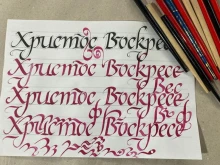 Христос Воскресе
Христос Воскресе
Христос Воскресе
Христос Воскресе